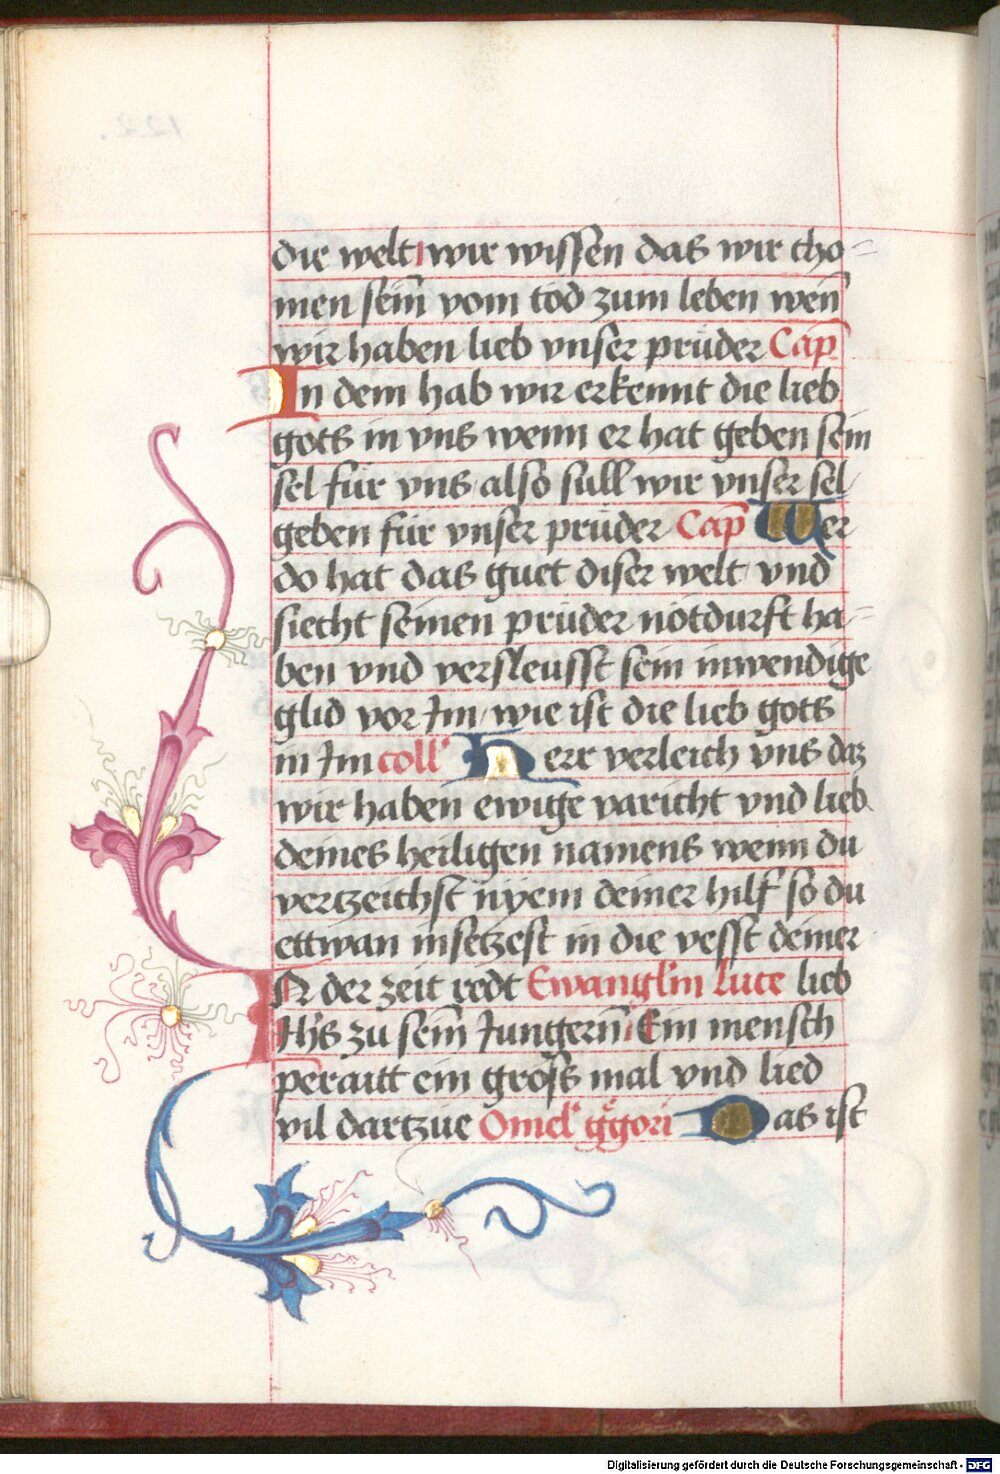 die welt wir wissen das wir cho=
men sein̄ vom tod zum leben wen̄
wir haben lieb vnser prüder Cap̄
In dem hab wir erkennt die lieb
gots in vns wenn er hat geben sein
sel für vns also sull wir vnser sel
geben für vnser prüder Cap̄ Wer
do hat das guet diser welt vnd
siecht seinen prüder notdurft ha=
ben vnd versleusst sein inwendige
glid vor Im wie ist die lieb gots
in Im coll' Herr verleich vns daz
wir haben ewige varicht vnd lieb
deines heiligen namens wenn du
vertzeichst nyem deiner hilf so du
ettwan insetzest in die vesst deiner
IN der zeit redt Ewangl'in Luce lieb
Ihs zu sein̄ Iungern̄ Ein mensch
peraitt ein groß mal vnd lied
vil dartzüe Omel' g̈gori Das ist
Digitalisierung gefördert durch die Deutsche Forschungsgemeinschaft - DFG